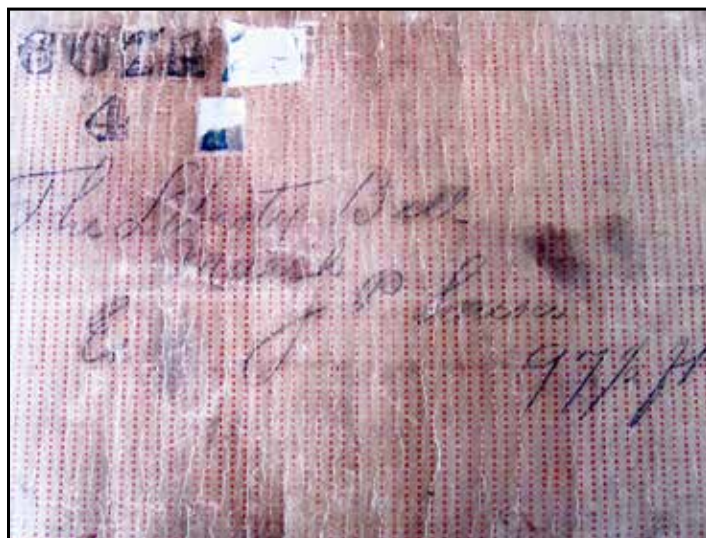 4
The Liberty Bell
March
J P Sousa
97½ ft